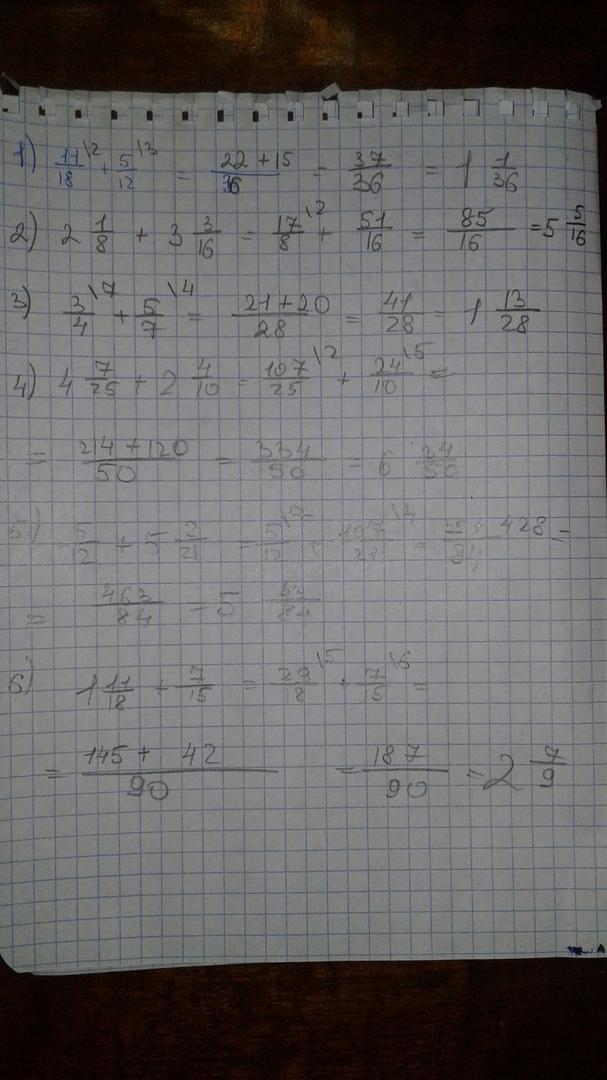 1) 11/18 \2 + 5/12 \3 = 22+15/36 = 37/36 = 1 1/36
2) 2 1/8 + 3 3/16 = 17/8 \2 + 51/16 = 85/16 = 5 5/16
3) 3/4 \7 + 5/7 \4 = 21+20/28 = 41/28 = 1 13/28
4) 4 7/25 + 2 4/10 = 107/25 \2 + 24/10 \5 =
= 214+120/50 = 334/50 = 6 34/50
5) 5/12 + 5 2/21 = 5/12 + 107/21 = 428 =
= 463/84 = 5 43/84
6) 1 11/18 + 7/15 = 29/8 \5 + 7/15 \6 =
= 145+ 42/90 = 187/90 = 2 7/9